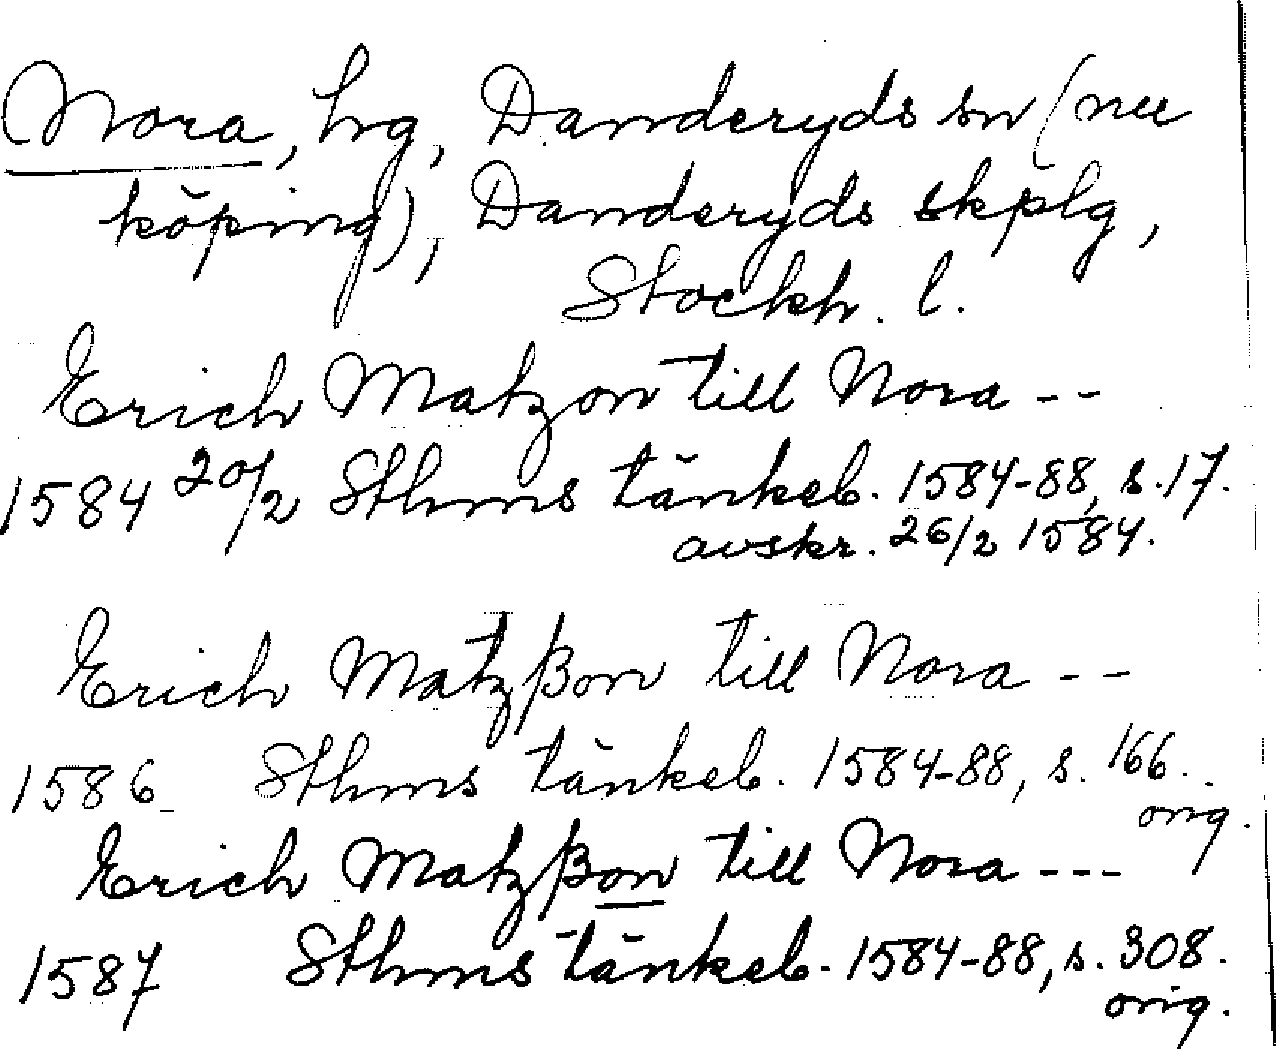 Nora, hg, Danderyds sn (nu
köping), Danderyds skplg,
Stockh. l.
Erich Matzon till Nora --
1584 20/2 Sthms tänkeb. 1584-88, s. 17.
avskr. 26/2 1584.
Erich Matzßon till Nora --
1586 Sthms tänkeb. 1584-88, s. 166.
orig.
Erich Matzßon till Nora ---
1587 Sthms tänkeb. 1584-88, s. 308.
orig.